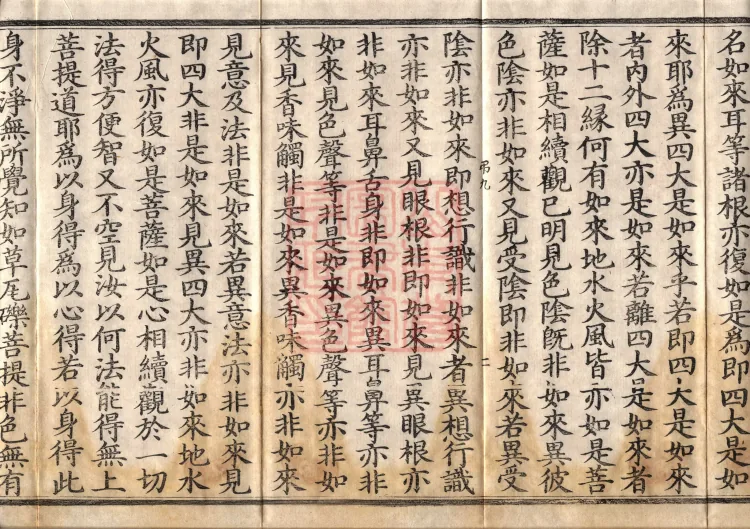 名如來耳等諸根亦復如是爲即四大是如
來耶爲異四大是如來乎若即四大是如來
者內外四大亦是如來若離四大是如來者
除十二緣何有如來地水火風皆亦如是菩
薩如是相續觀已明見色陰旣非如來異彼
色陰亦非如來又見受陰即非如來若異受
弔九 二
陰亦非如來即想行識非如來者異想行識
亦非如來又見眼根非即如來見異眼根亦
非如來耳鼻舌身非即如來異耳鼻等亦非
如來見色聲等非是如來異色聲等亦非如
來見香味觸非是如來異香味觸亦非如來
見意及法非是如來若異意法亦非如來見
即四大非是如來見異四大亦非如來地水
火風亦復如是菩薩如是心相續觀於一切
法得方便智又不空見汝以何法能得無上
菩提道耶爲以身得爲以心得若以身得此
身不淨無所覺知如草尾礫菩提非色無有